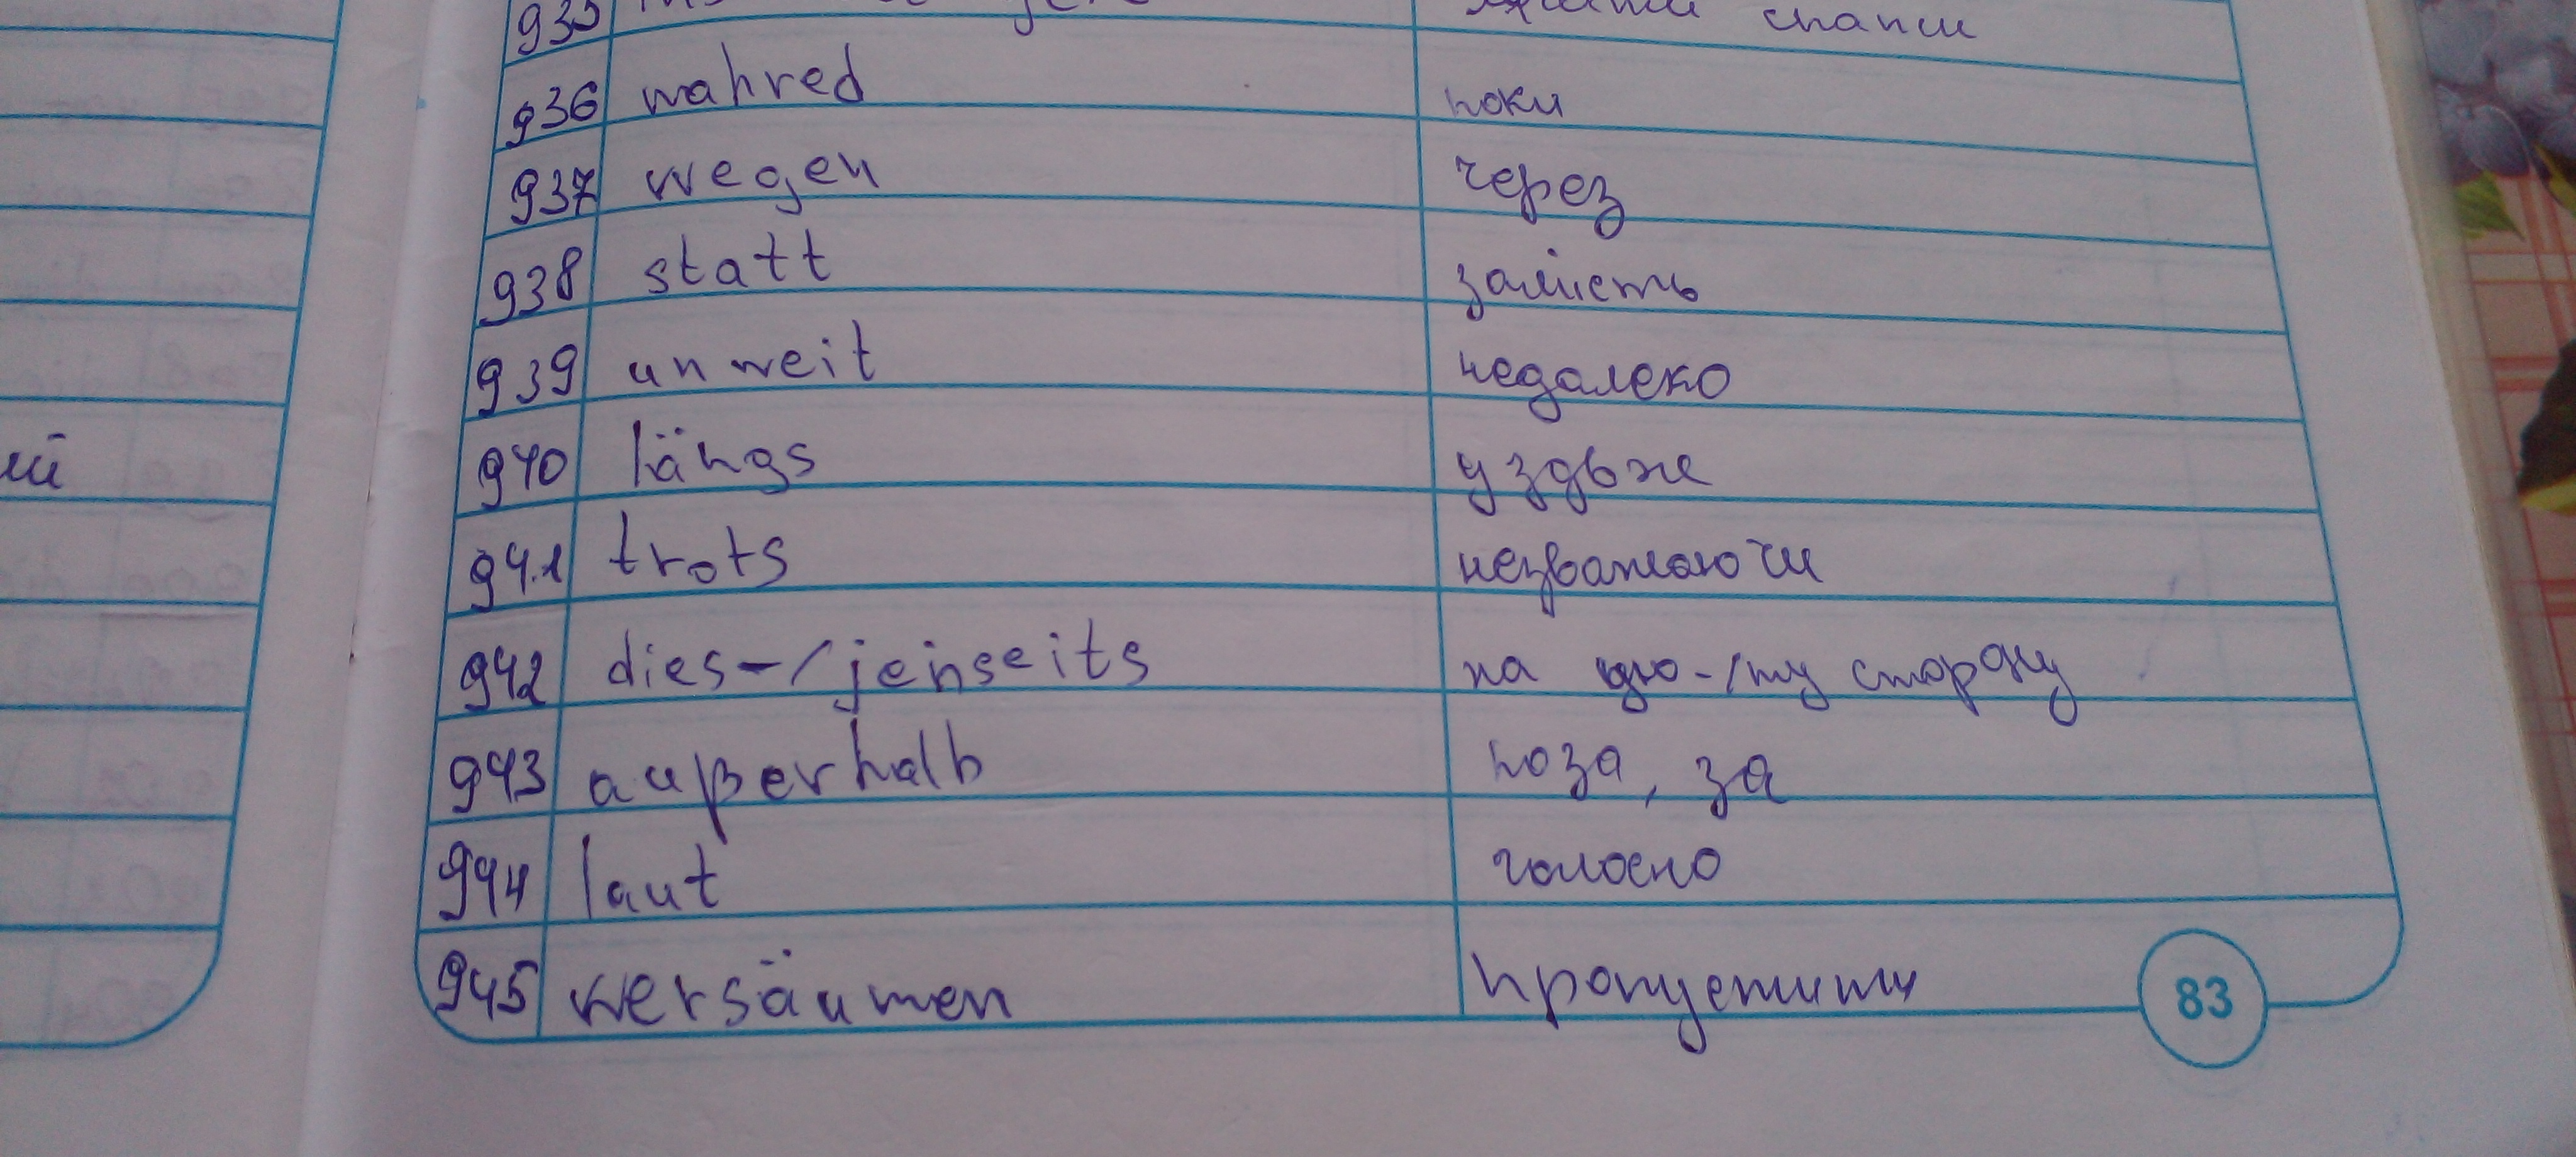 935 спати
936 wahred поки
937 wegen через
938 statt замість
939 unweit недалеко
940 längs уздвже
941 trots незважаючи
942 dies-/jenseits на цю-/ту сторону
943 außerhalb поза, за
944 laut голосно
945 wersäumen пропустити
83
ий